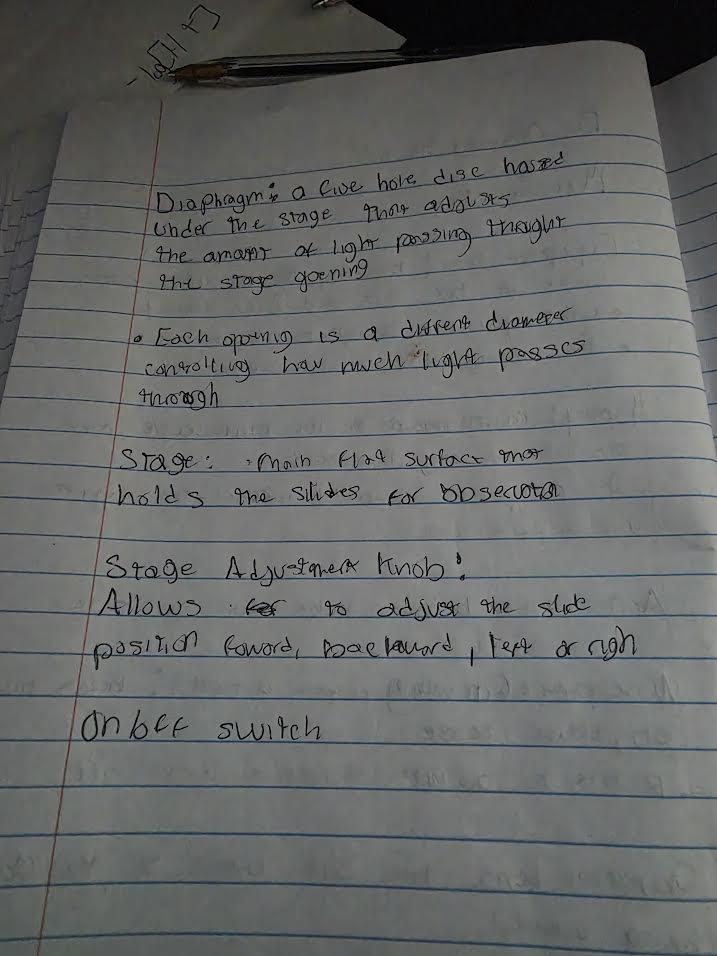 - log[H+]
Diaphragm: a five hole disc hosted
under the stage that adjusts
the amant of light passing throught
the stage goening
• Each openig is a diffrent diameter
controlling how much light passes
through
Stage: · Main flat surface that
holds the slides for
Stage Adjustment Knob:
Allows to adjust the slide
position foward, backward, left or righ
On off switch